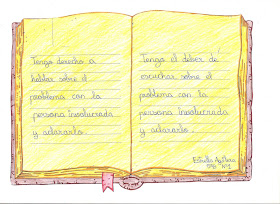 Tengo derecho a
hablar sobre el
problema con la
persona involucrada
y aclararlo.
Tengo el deber de
escuchar sobre el
problema con la
persona involucrada
y aclararlo.
5ºB Nº1